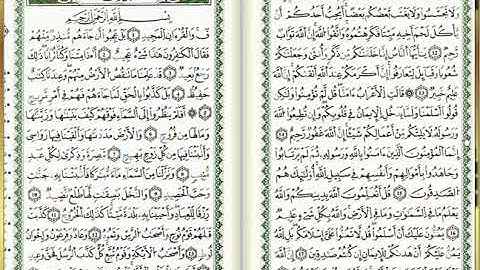 وَلَا تَجَسَّسُوا۟ وَلَا يَغْتَب بَّعْضُكُم بَعْضًا أَيُحِبُّ أَحَدُكُمْ أَن
يَأْكُلَ لَحْمَ أَخِيهِ مَيْتًا فَكَرِهْتُمُوهُ وَٱتَّقُوا۟ ٱللَّهَ إِنَّ ٱللَّهَ تَوَّابٌ
رَّحِيمٌ ١٢ يَٰٓأَيُّهَا ٱلنَّاسُ إِنَّا خَلَقْنَٰكُم مِّن ذَكَرٍ وَأُنثَىٰ وَجَعَلْنَٰكُمْ
شُعُوبًا وَقَبَآئِلَ لِتَعَارَفُوٓا۟ إِنَّ أَكْرَمَكُمْ عِندَ ٱللَّهِ أَتْقَىٰكُمْ إِنَّ ٱللَّهَ
عَلِيمٌ خَبِيرٌ ١٣ قَالَتِ ٱلْأَعْرَابُ ءَامَنَّا قُل لَّمْ تُؤْمِنُوا۟ وَلَٰكِن
قُولُوٓا۟ أَسْلَمْنَا وَلَمَّا يَدْخُلِ ٱلْإِيمَٰنُ فِى قُلُوبِكُمْ وَإِن تُطِيعُوا۟ ٱللَّهَ
وَرَسُولَهُۥ لَا يَلِتْكُم مِّنْ أَعْمَٰلِكُمْ شَيْـًٔا إِنَّ ٱللَّهَ غَفُورٌ رَّحِيمٌ ١٤
إِنَّمَا ٱلْمُؤْمِنُونَ ٱلَّذِينَ ءَامَنُوا۟ بِٱللَّهِ وَرَسُولِهِۦ ثُمَّ لَمْ يَرْتَابُوا۟
وَجَٰهَدُوا۟ بِأَمْوَٰلِهِمْ وَأَنفُسِهِمْ فِى سَبِيلِ ٱللَّهِ أُو۟لَٰٓئِكَ هُمُ
ٱلصَّٰدِقُونَ ١٥ قُلْ أَتُعَلِّمُونَ ٱللَّهَ بِدِينِكُمْ وَٱللَّهُ
يَعْلَمُ مَا فِى ٱلسَّمَٰوَٰتِ وَمَا فِى ٱلْأَرْضِ وَٱللَّهُ بِكُلِّ شَىْءٍ عَلِيمٌ
١٦ يَمُنُّونَ عَلَيْكَ أَنْ أَسْلَمُوا۟ قُل لَّا تَمُنُّوا۟ عَلَىَّ إِسْلَٰمَكُم بَلِ ٱللَّهُ
يَمُنُّ عَلَيْكُمْ أَنْ هَدَىٰكُمْ لِلْإِيمَٰنِ إِن كُنتُمْ صَٰدِقِينَ ١٧
بِسْمِ ٱللَّهِ ٱلرَّحْمَٰنِ ٱلرَّحِيمِ
قٓ وَٱلْقُرْءَانِ ٱلْمَجِيدِ ١ بَلْ عَجِبُوٓا۟ أَن جَآءَهُم مُّنذِرٌ مِّنْهُمْ
فَقَالَ ٱلْكَٰفِرُونَ هَٰذَا شَىْءٌ عَجِيبٌ ٢ أَءِذَا مِتْنَا وَكُنَّا تُرَابًا ذَٰلِكَ
رَجْعٌۢ بَعِيدٌ ٣ قَدْ عَلِمْنَا مَا تَنقُصُ ٱلْأَرْضُ مِنْهُمْ وَعِندَنَا كِتَٰبٌ
حَفِيظٌۢ ٤ بَلْ كَذَّبُوا۟ بِٱلْحَقِّ لَمَّا جَآءَهُمْ فَهُمْ فِىٓ أَمْرٍ مَّرِيجٍ
٥ أَفَلَمْ يَنظُرُوٓا۟ إِلَى ٱلسَّمَآءِ فَوْقَهُمْ كَيْفَ بَنَيْنَٰهَا وَزَيَّنَّٰهَا
وَمَا لَهَا مِن فُرُوجٍ ٦ وَٱلْأَرْضَ مَدَدْنَٰهَا وَأَلْقَيْنَا فِيهَا رَوَٰسِىَ
وَأَنۢبَتْنَا فِيهَا مِن كُلِّ زَوْجٍۭ بَهِيجٍ ٧ تَبْصِرَةً وَذِكْرَىٰ لِكُلِّ عَبْدٍ
مُّنِيبٍ ٨ وَنَزَّلْنَا مِنَ ٱلسَّمَآءِ مَآءً مُّبَٰرَكًا فَأَنۢبَتْنَا بِهِۦ جَنَّٰتٍ
وَحَبَّ ٱلْحَصِيدِ ٩ وَٱلنَّخْلَ بَاسِقَٰتٍ لَّهَا طَلْعٌ نَّضِيدٌ ١٠
رِّزْقًا لِّلْعِبَادِ وَأَحْيَيْنَا بِهِۦ بَلْدَةً مَّيْتًا كَذَٰلِكَ ٱلْخُرُوجُ ١١ كَذَّبَتْ
قَبْلَهُمْ قَوْمُ نُوحٍ وَأَصْحَٰبُ ٱلرَّسِّ وَثَمُودُ ١٢ وَعَادٌ وَفِرْعَوْنُ وَإِخْوَٰنُ
لُوطٍ ١٣ وَأَصْحَٰبُ ٱلْأَيْكَةِ وَقَوْمُ تُبَّعٍ كُلٌّ كَذَّبَ ٱلرُّسُلَ فَحَقَّ وَعِيدِ